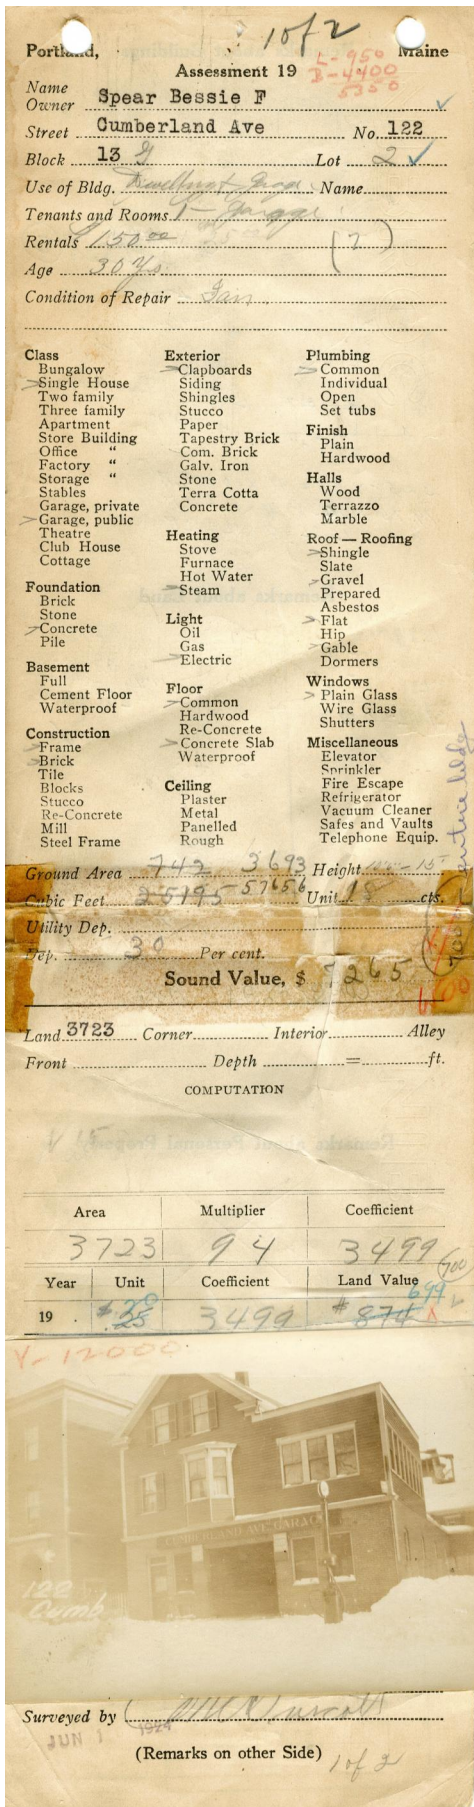 1 of 2
Portland, Maine
L-950
Assessment 19
B-4400
5350
Name
Owner Spear Bessie F
Street Cumberland Ave No. 122
Block 13 G Lot 2
Use of Bldg. Dwelling + Garage Name
Tenants and Rooms 1 - Garage
Rentals 150 00 (7)
Age 30 Ys.
Condition of Repair Fair
Class
Bungalow
Single House
Two family
Three family
Apartment
Store Building
Office "
Factory "
Storage "
Stables
Garage, private
Garage, public
Theatre
Club House
Cottage
Foundation
Brick
Stone
Concrete
Pile
Basement
Full
Cement Floor
Waterproof
Construction
Frame
Brick
Tile
Blocks
Stucco
Re-Concrete
Mill
Steel Frame
Exterior
Clapboards
Siding
Shingles
Stucco
Paper
Tapestry Brick
Com. Brick
Galv. Iron
Stone
Terra Cotta
Concrete
Heating
Stove
Furnace
Hot Water
Steam
Light
Oil
Gas
Electric
Floor
Common
Hardwood
Re-Concrete
Concrete Slab
Waterproof
Ceiling
Plaster
Metal
Panelled
Rough
Plumbing
Common
Individual
Open
Set tubs
Finish
Plain
Hardwood
Halls
Wood
Terrazzo
Marble
Roof — Roofing
Shingle
Slate
Gravel
Prepared
Asbestos
Flat
Hip
Gable
Dormers
Windows
Plain Glass
Wire Glass
Shutters
Miscellaneous
Elevator
Sprinkler
Fire Escape
Refrigerator
Vacuum Cleaner
Safes and Vaults
Telephone Equip.
entire bldg
Ground Area 742 3693 Height
Cubic Feet 25195 57656 Unit 18 cts.
Utility Dep.
Dep. 30 Per cent.
Sound Value, $ 7265
Land 3723 Corner Interior Alley
Front Depth = ft.
COMPUTATION
Area Multiplier Coefficient
3723 94 3499
700
Year Unit Coefficient Land Value
699
19 $.20 .25 3499 $874
V-12000
CUMBERLAND AVE GARAGE
122
Cumb
Surveyed by
JUN 1 1924
(Remarks on other Side) 1 of 2